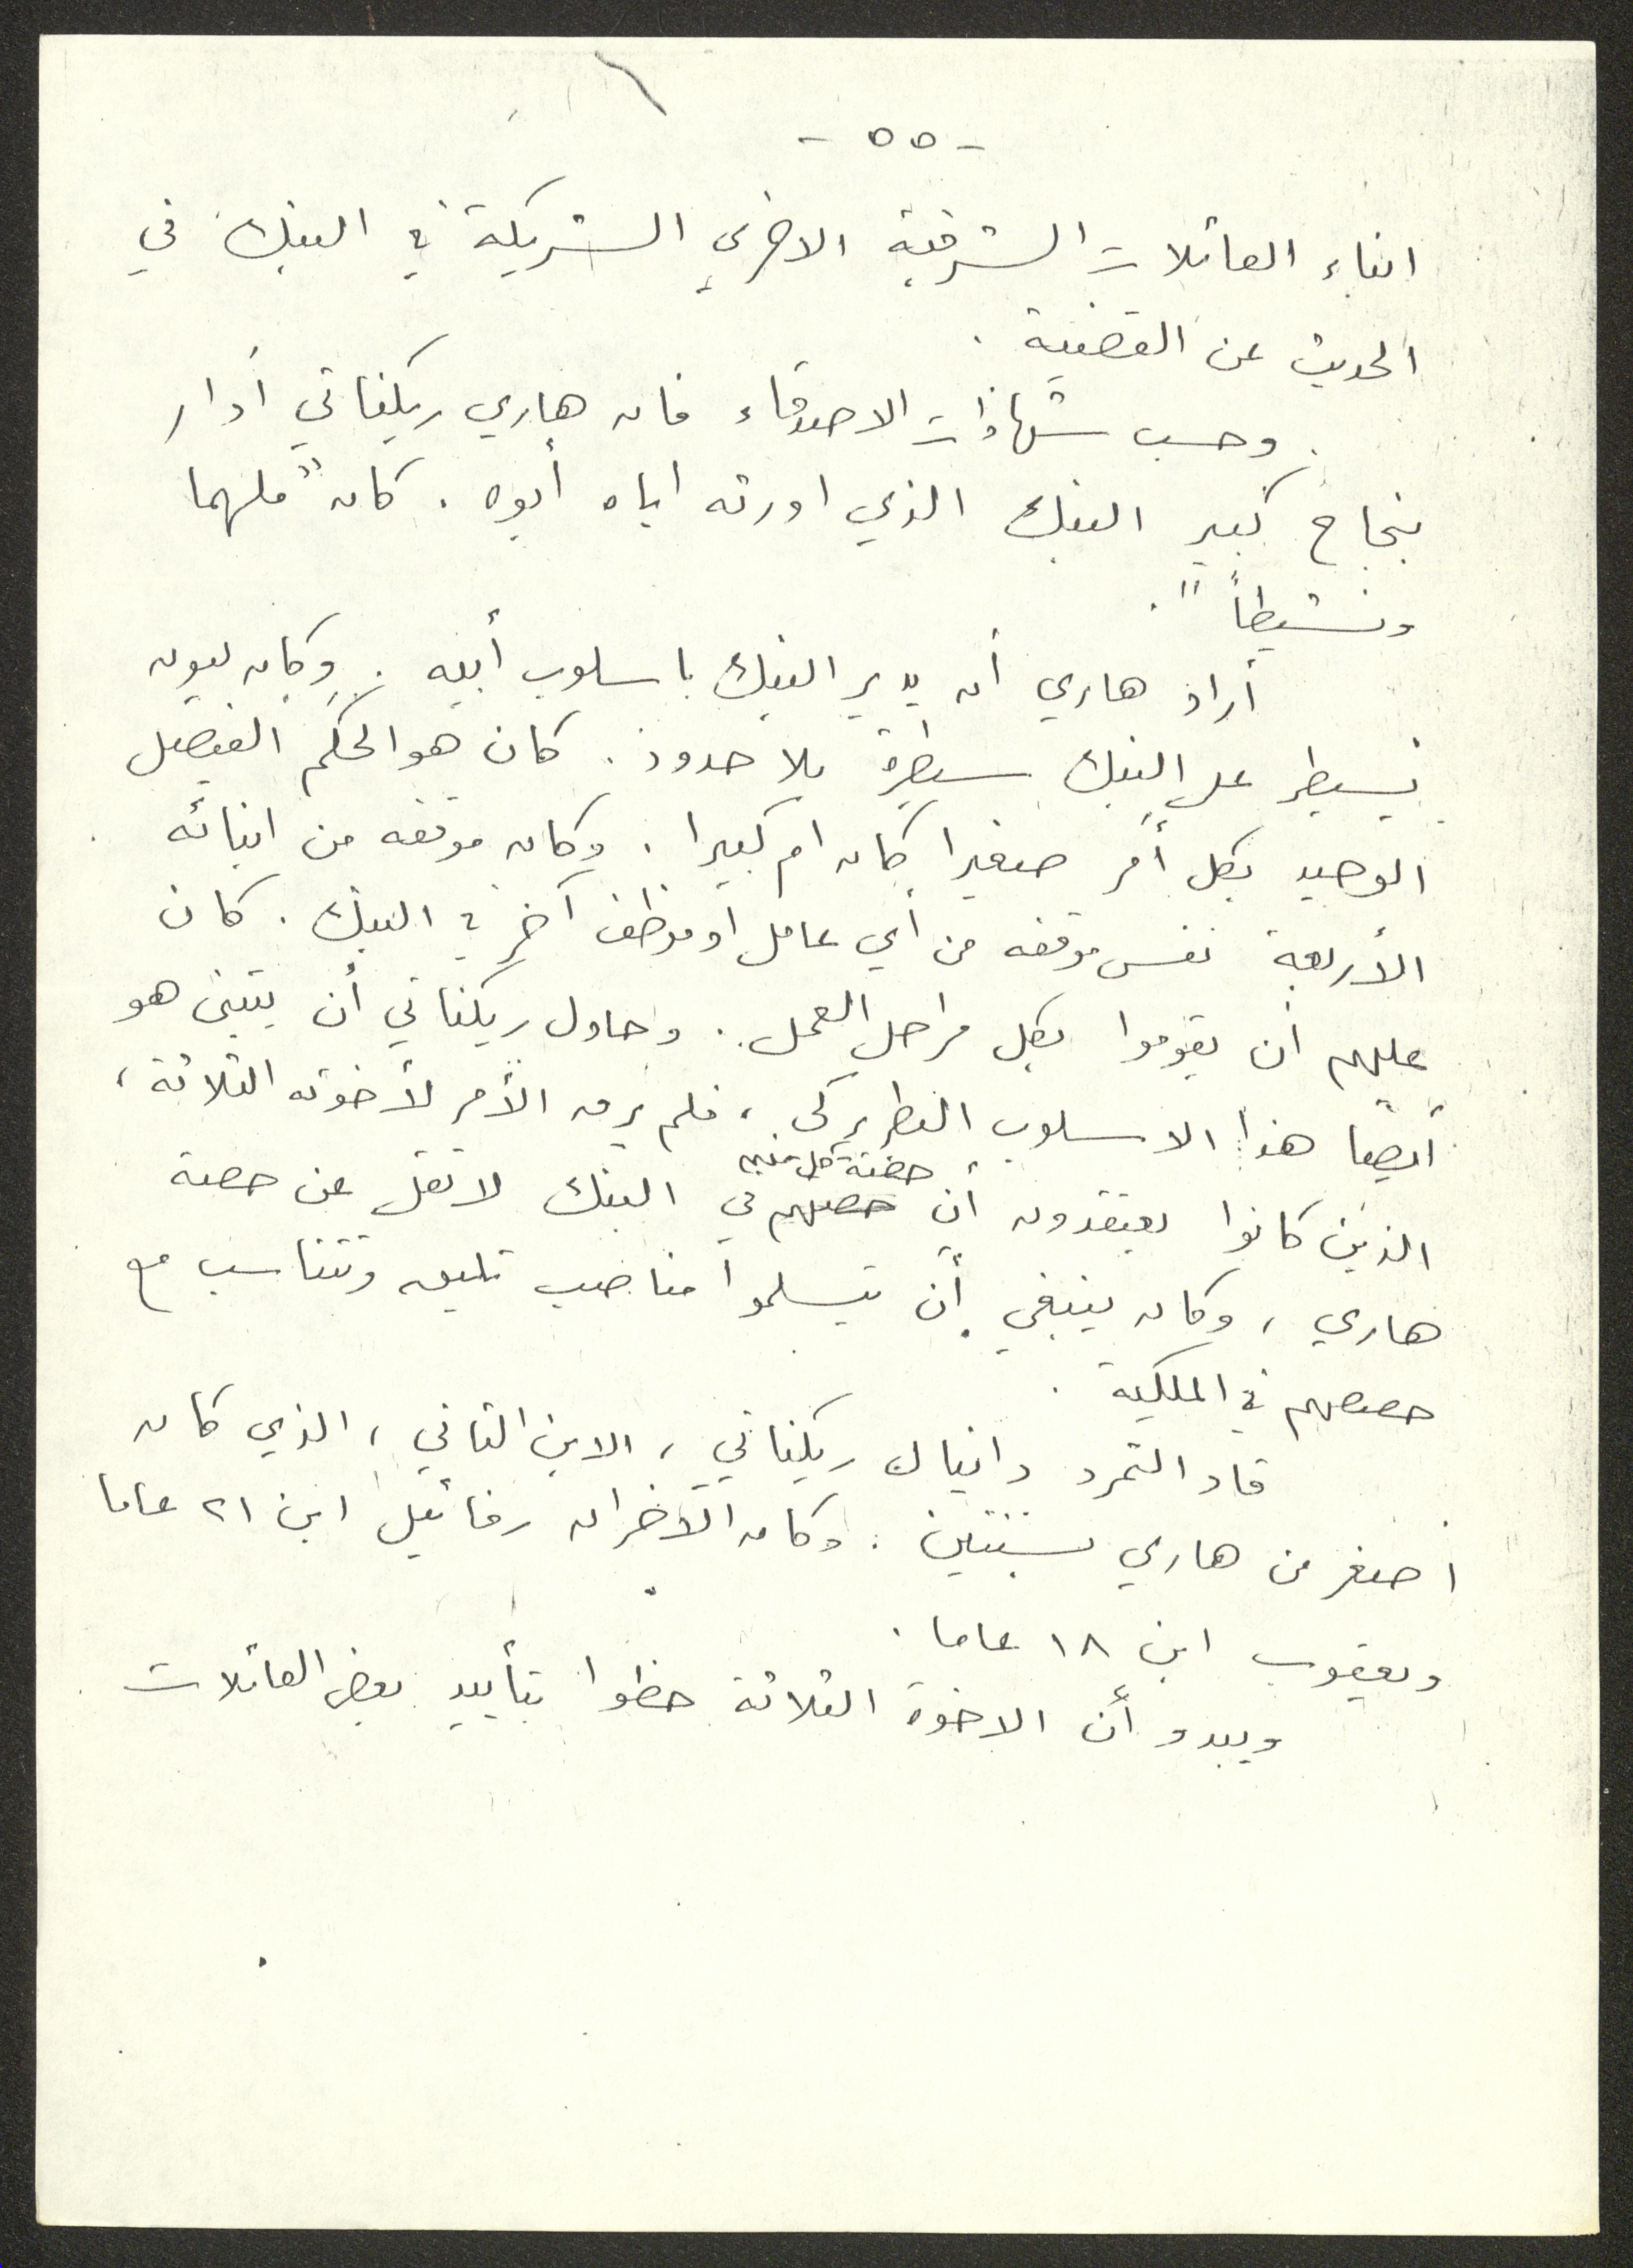 - ٥٥ -
ابناء العائلات الشرقية الاخرى الشريكة في البنك في
الحديث عن القضية .
وحسب شهادات الاصدقاء فان هاري ريكناتي أدار
بنجاح كبير البنك الذي اورثه اياه أبوه . كان "ملهما
ونشيطاً" .
أراد هاري أن يدير البنك باسلوب أبيه . وكان ليون
يسيطر على البنك سيطرة بلا حدود . كان هو الحكم الفيصل
الوحيد بكل أمر صغيرا كان ام كبيرا . وكان موقفه من ابنائه
الأربعة نفس موقفه من أي عامل او موظف آخر في البنك . كان
عليهم أن يقوموا بكل مراحل العمل . وحاول ريكناتي أن يتبنى هو
أيضا هذا الاسلوب البطريركي ، فلم يرق الأمر لأخوته الثلاثة ،
الذين كانوا يعتقدون أن حصة كل منهم في البنك لا تقل عن حصة
هاري ، وكان ينبغي أن يتسلموا مناصب تليق وتتناسب مع
حصصهم في الملكية .
قاد التمرد دانيال ريكناتي ، الابن الثاني ، الذي كان
اصغر من هاري بسنتين . وكان الآخران رفائيل ابن ٢١ عاما
ويعقوب ابن ١٨ عاما .
ويبدو أن الاخوة الثلاثة حظوا بتأييد بعض العائلات